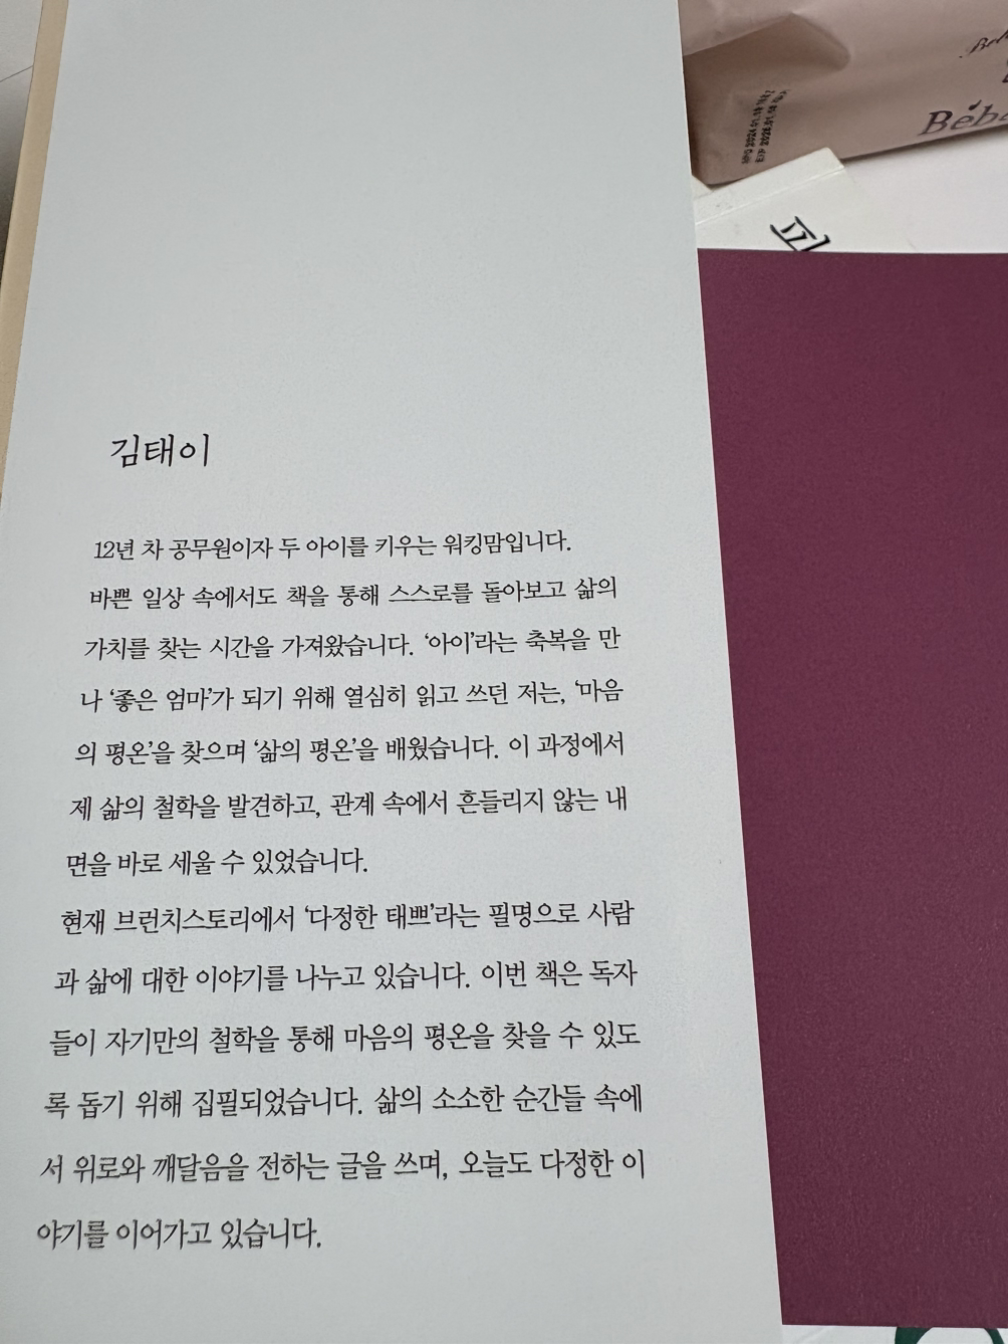 Béb
김태이
12년 차 공무원이자 두 아이를 키우는 워킹맘입니다.
바쁜 일상 속에서도 책을 통해 스스로를 돌아보고 삶의
가치를 찾는 시간을 가져왔습니다. ‘아이’라는 축복을 만
나 ‘좋은 엄마’가 되기 위해 열심히 읽고 쓰던 저는, ‘마음
의 평온’을 찾으며 ‘삶의 평온’을 배웠습니다. 이 과정에서
제 삶의 철학을 발견하고, 관계 속에서 흔들리지 않는 내
면을 바로 세울 수 있었습니다.
현재 브런치스토리에서 ‘다정한 태쁘’라는 필명으로 사람
과 삶에 대한 이야기를 나누고 있습니다. 이번 책은 독자
들이 자기만의 철학을 통해 마음의 평온을 찾을 수 있도
록 돕기 위해 집필되었습니다. 삶의 소소한 순간들 속에
서 위로와 깨달음을 전하는 글을 쓰며, 오늘도 다정한 이
야기를 이어가고 있습니다.